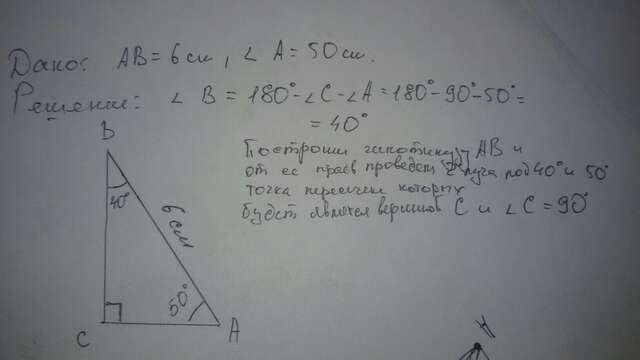 Дано: AB = 6 см, ∠ A = 50 см.
Решение: ∠ B = 180° - ∠C - ∠A = 180° - 90° - 50° =
= 40°
B
Построим гипотинузу AB и
от ее проведем 2 луча под 40° и 50°
точка пересечен которых
будет являтся вершиной C и ∠ C = 90°
40°
6 см
50°
C
A
A